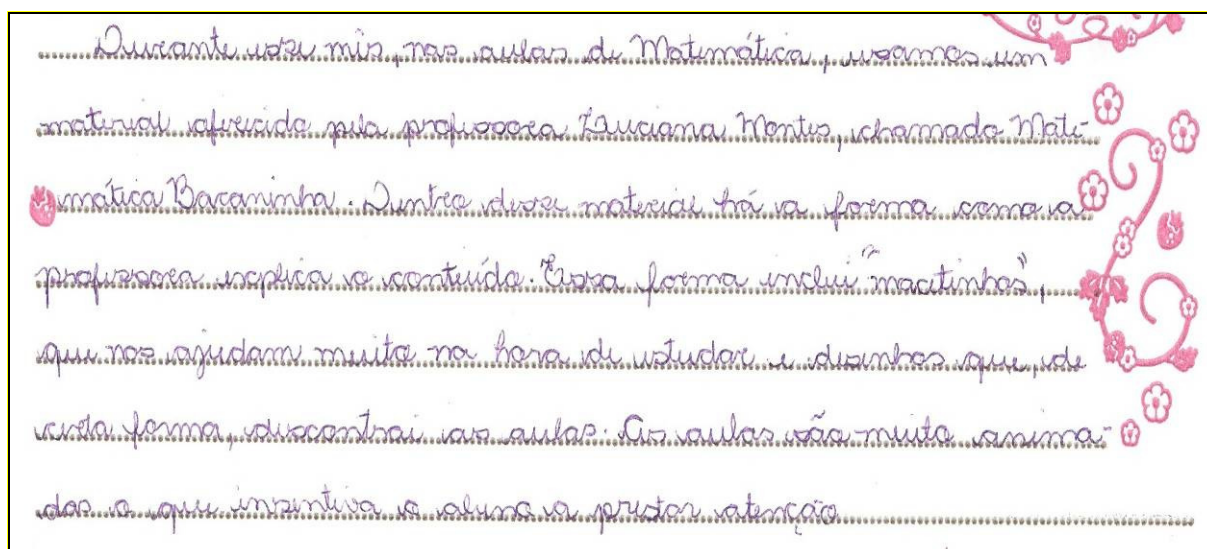 Durante esse mês, nas aulas de Matemática, usamos um
material oferecido pela professora Luciana Montes, chamado Mate-
mática Bacaninha. Dentro desse material há a forma como a
professora explica o conteúdo. Essa forma inclui "macetinhos",
que nos ajudam muito na hora de estudar e desenhos que, de
certa forma, descontrai as aulas. As aulas são muito anima-
das o que insentiva o aluno a prestar atenção